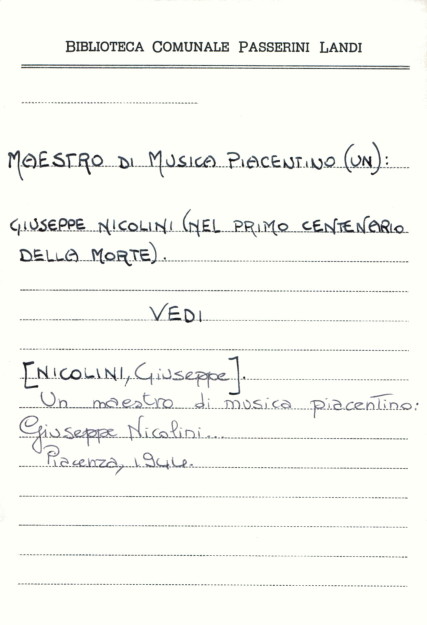 BIBLIOTECA COMUNALE PASSERINI LANDI
MAESTRO DI MUSICA PIACENTINO (UN):
GIUSEPPE NICOLINI (NEL PRIMO CENTENARIO
DELLA MORTE).
VEDI
[NICOLINI, Giuseppe].
Un maestro di musica piacentino:
Giuseppe Nicolini...
Piacenza, 1944.